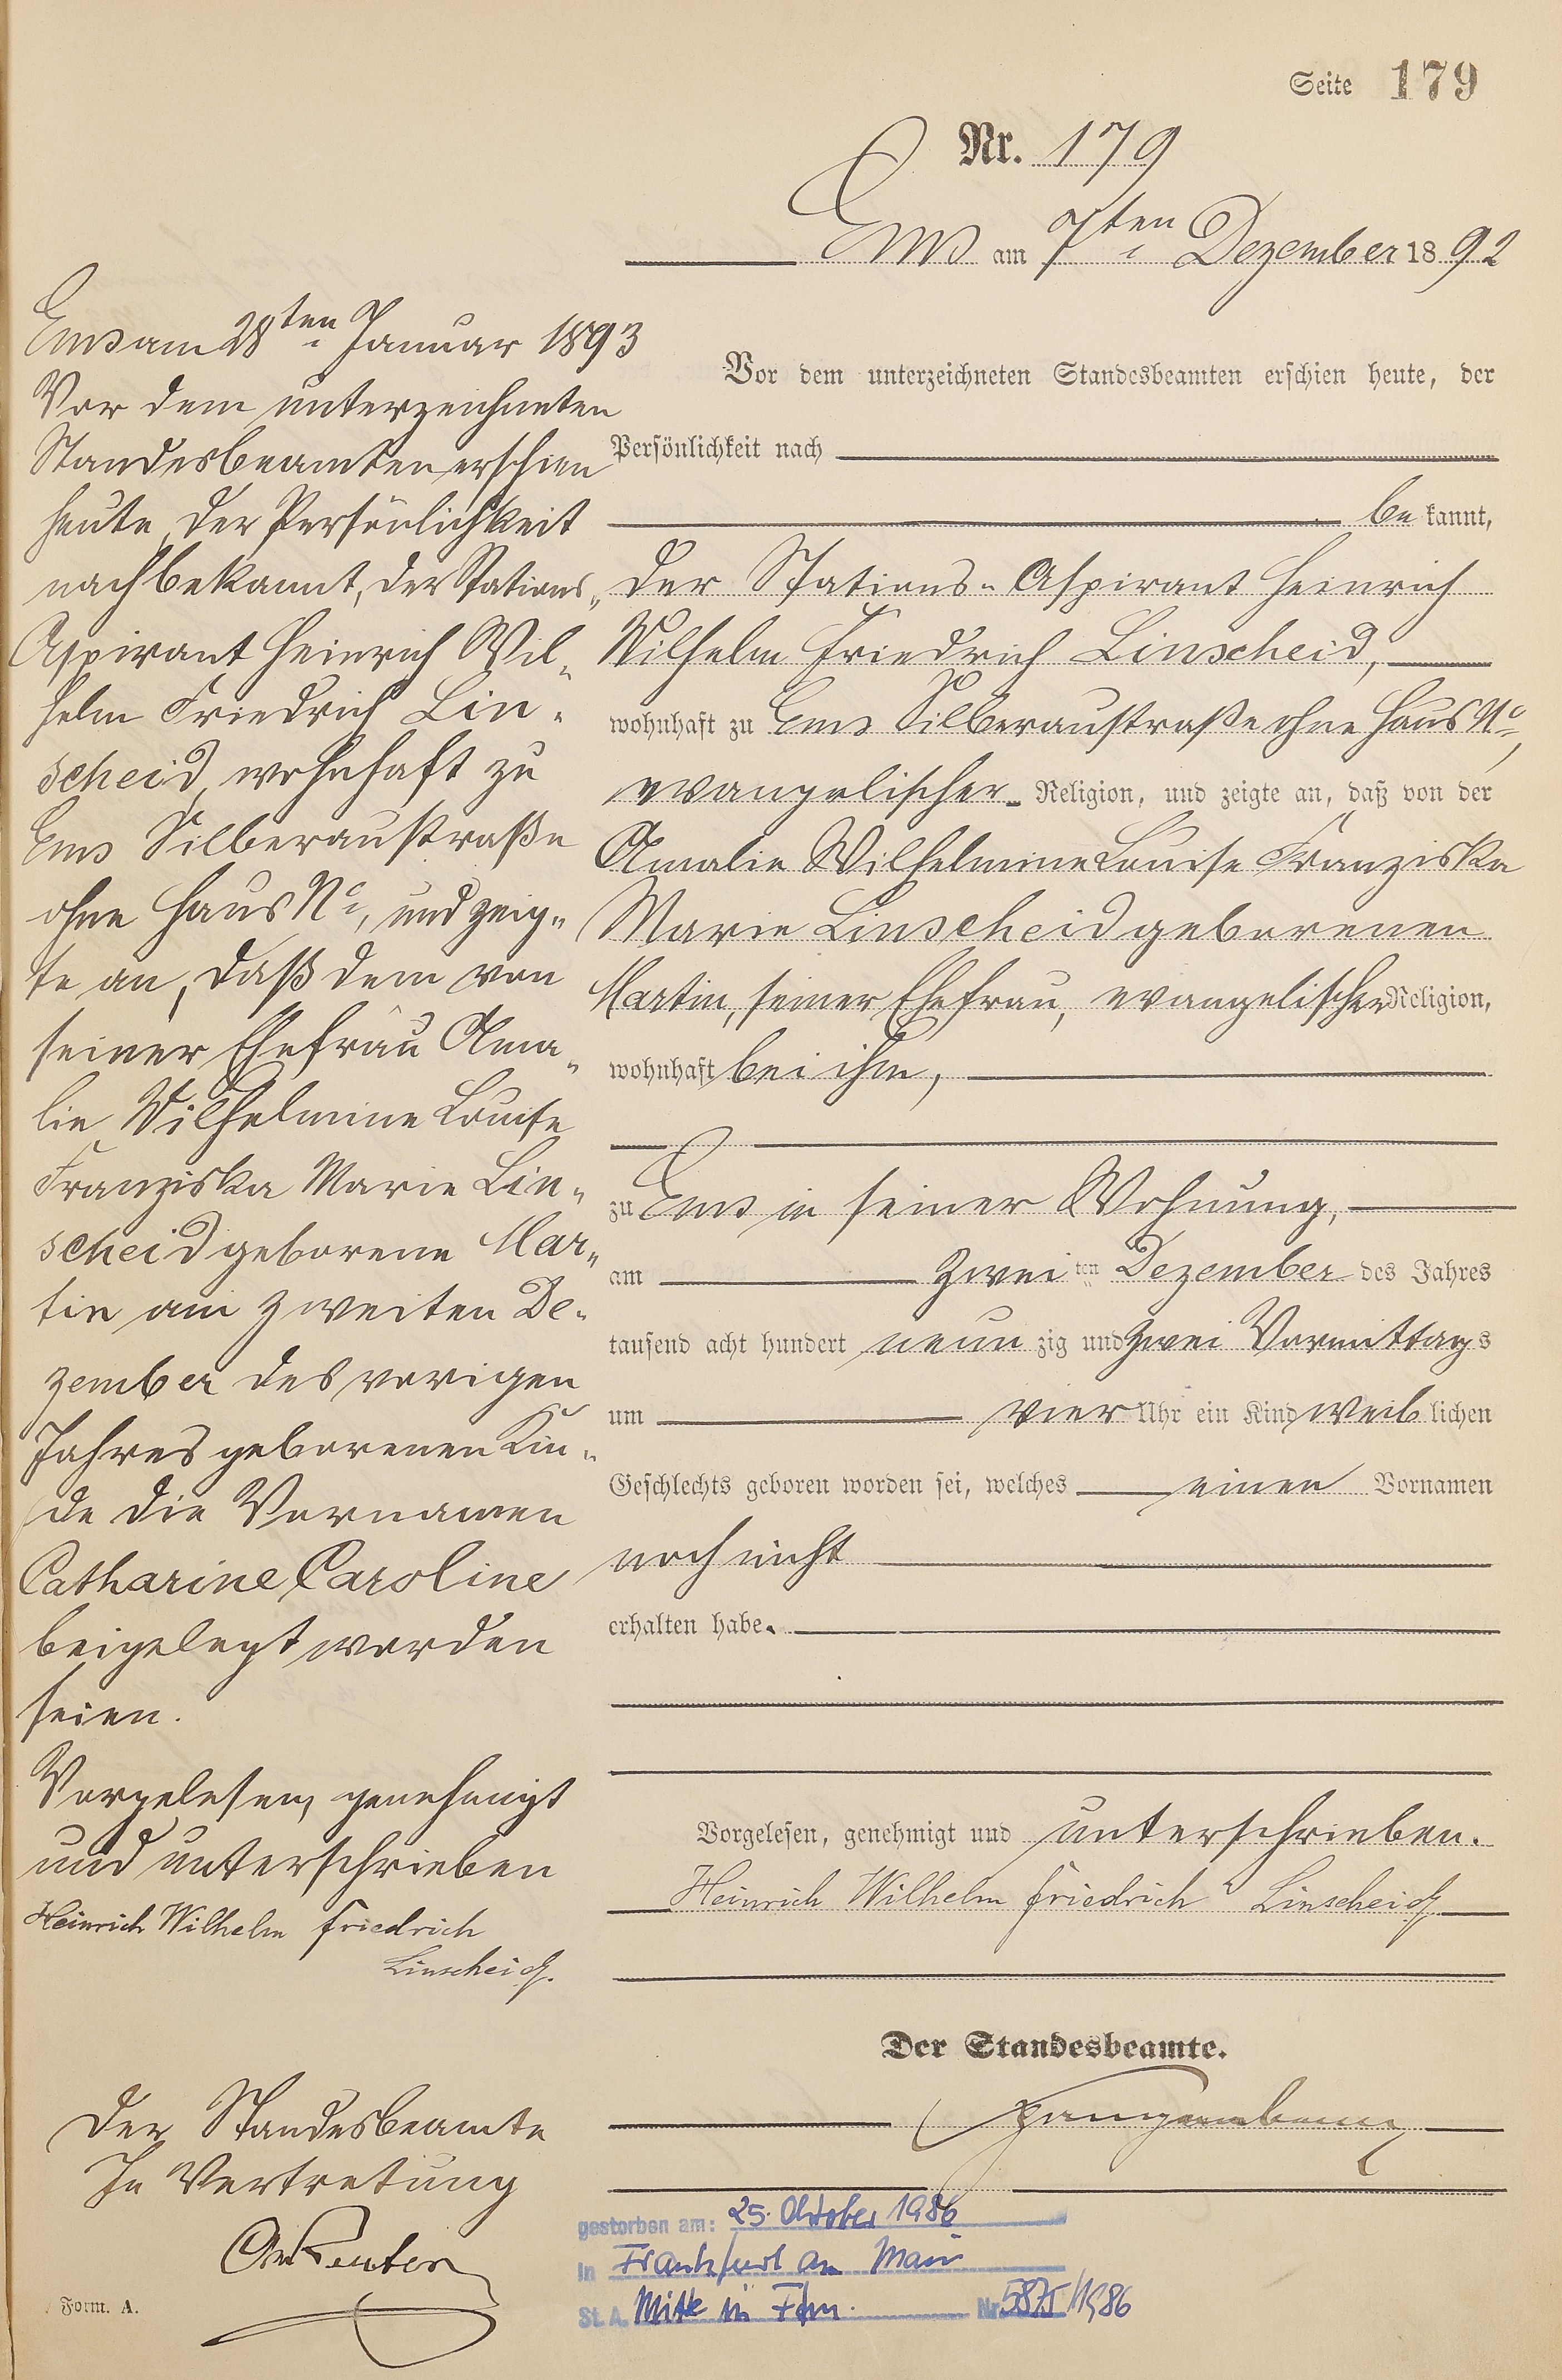 Seite 179
Nr. 179
Ems am 7ten Dezember 1892
Vor dem unterzeichneten Standesbeamten erschien heute, der
Persönlichkeit nach
bekannt,
der Stations-Aspirant Heinrich
Wilhelm Friedrich Linscheid,
wohnhaft zu Ems Silberaustraße ohne Haus No,
evangelischer Religion, und zeigte an, daß von der
Amalie Wilhelmine Louise Franziska
Marie Linscheid geborenen
Martin, seiner Ehefrau, evangelischer Religion,
wohnhaft bei ihm,
zu Ems in seiner Wohnung,
am zweiten Dezember des Jahres
tausend acht hundert neunzig und zwei Vormittags
um vier Uhr ein Kind weiblichen
Geschlechts geboren worden sei, welches einen Vornamen
noch nicht
erhalten habe.
Vorgelesen, genehmigt und unterschrieben.
Heinrich Wilhelm Friedrich Linscheid
Der Standesbeamte.
Ems am 28ten Januar 1893
Vor dem unterzeichneten
Standesbeamten erschien
heute, der Persönlichkeit
nach bekannt, der Stations-
Aspirant Heinrich Wil-
helm Friedrich Lin-
scheid, wohnhaft zu
Ems Silberaustraße
ohne Haus No, und zeig-
te an, daß dem von
seiner Ehefrau Ama-
lie Wilhelmine Louise
Franziska Marie Lin-
scheid geborene Mar-
tin am zweiten De-
zember des vorigen
Jahres geborenen Kin-
de die Vornamen
Catharine Caroline
beigelegt worden
seien.
Vorgelesen, genehmigt
und unterschrieben
Heinrich Wilhelm Friedrich
Linscheid.
Der Standesbeamte
In Vertretung
Form. A.
gestorben am: 25. Oktober 1986
in Frankfurt am Main
St. A. Mitte in Ffm. Nr. 5875/1986